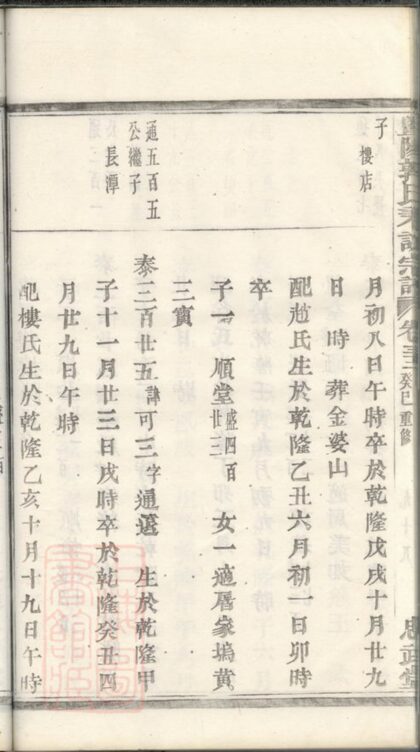 氏
宗譜
卷
癸巳重修
忠正堂
子
樓店
月初八日午時卒於乾隆戊戌十月廿九
日 時葬金婆山
配趙氏生於乾隆乙丑六月初一日卯時
卒
子一 順堂盛四百廿 女一適厝家塢黃
三賓
通五百五
公繼子
長潭
泰三百廿五諱可三字通遠 生於乾隆甲
子十一月廿三日戌時卒於乾隆癸丑四
月廿九日午時
配樓氏生於乾隆乙亥十月十九日午時